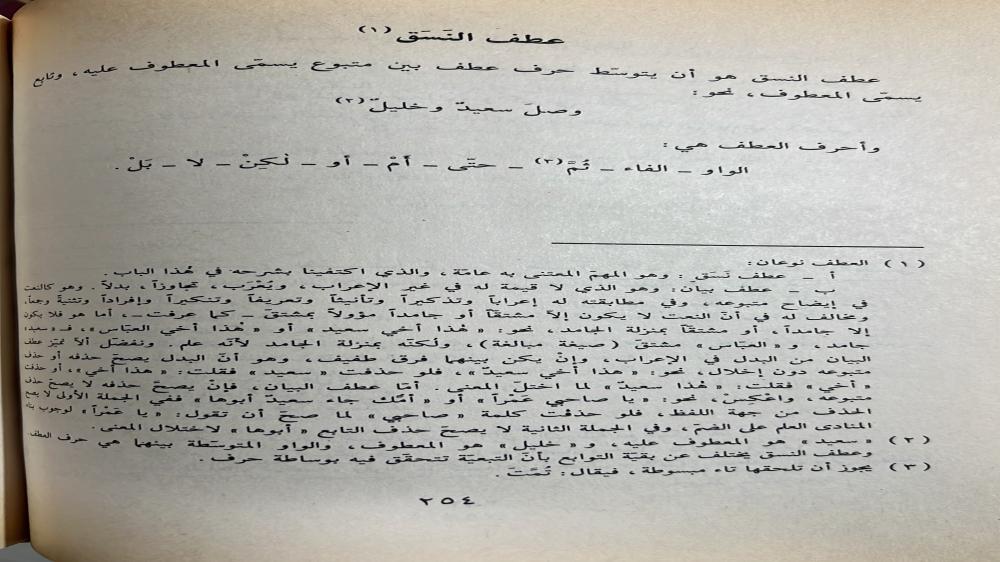 عطف النَسَق (١)
عطف النسق هو أن يتوسّط حرف عطف بين متبوع يسمّى المعطوف عليه، وتابع
يسمّى المعطوف، نحو:
وصلَ سعيدٌ وخليلٌ (٢)
وأحرف العطف هي:
الواو ـ الفاء ـ ثُمَّ (٣) ـ حتّى ـ أمْ ـ أو ـ لٰكِنْ ـ لا ـ بَلْ.
(١) العطف نوعان:
أ ـ عطف نَسَق: وهو المهمّ المعتنى به عامّة، والذي اكتفينا بشرحه في هٰذا الباب.
ب ـ عطف بيان: وهو الذي لا قيمة له في غير الإعراب، ويُعْرَب، تجاوزاً، بدلاً. وهو كالنعت
في إيضاح متبوعه، وفي مطابقته له إعراباً وتذكيراً وتأنيثاً وتعريفاً وتنكيراً وإفراداً وتثنيةً وجمعاً.
ويخالف له في أنّ النعت لا يكون إلاّ مشتقّاً أو جامداً مؤولاً بمشتقّ ـ كما عرفت ـ، أما هو فلا يكون
إلا جامداً، أو مشتقّاً بمنزلة الجامد، نحو: «هٰذا أخي سعيد» أو «هٰذا أخي العبّاس»، فـ «سعيد»
جامد، و«العبّاس» مشتقّ (صيغة مبالغة)، ولٰكنّه بمنزلة الجامد لأنّه علم. ونفضّل ألاّ نميّز عطف
البيان من البدل في الإعراب، وإنْ يكن بينهما فرق طفيف، وهو أنّ البدل يصحّ حذفه أو حذف
متبوعه دون إخلال، نحو: «هٰذا أخي سعيدٌ»، فلو حذفت «سعيد» فقلت: «هٰذا أخي»، أو حذفت
«أخي» فقلت: «هٰذا سعيدٌ» لما اختلّ المعنى. أمّا عطف البيان، فإنْ يصحّ حذفه لا يصحّ حذف
متبوعه، واعْكِسْ، نحو: «يا صاحبي عَمْراً» أو «أمّك جاء سعيدٌ أبوها» ففي الجملة الأولى لا يصحّ
الحذف من جهة اللفظ، فلو حذفت كلمة «صاحبي» لما صحّ أن تقول: «يا عَمْراً» لوجوب بناء
المنادى العلم على الضمّ، وفي الجملة الثانية لا يصحّ حذف التابع «أبوها» لاختلال المعنى.
(٢) «سعيد» هو المعطوف عليه، و«خليل» هو المعطوف، والواو المتوسّطة بينهما هي حرف العطف.
وعطف النسق يختلف عن بقيّة التوابع بأنّ التبعيّة تتحقّق فيه بوساطة حرف.
(٣) يجوز أن تلحقها تاء مبسوطة، فيقال: ثُمَّتَ.
٢٥٤